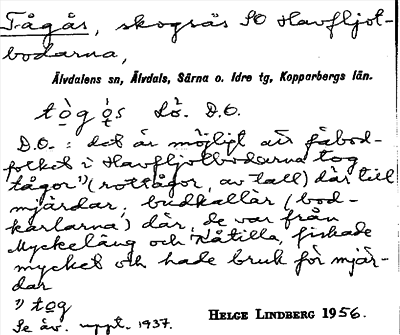 Tågås, skogsås SO Havfljot-
bodarna,
Älvdalens sn, Älvdals, Särna o. Idre tg, Kopparbergs län.
D.O.
D.O.: det är möjligt att fäbod-
folket i Havfljotbodarna tog
"tågor"¹) (rottågor, av tall) där till
mjärdar; budkallär (bod-
karlarna) där, de var från
Myckeläng och Kåtilla, fiskade
mycket och hade bruk för mjär-
dar
¹) tog
Se äv. uppt. 1937.
HELGE LINDBERG 1956.